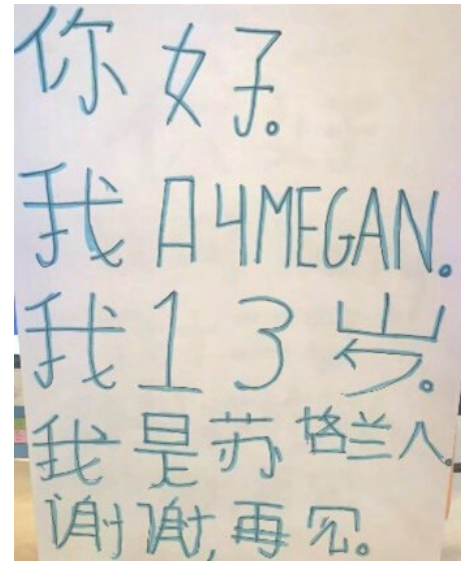 你好。
我叫MEGAN。
我13岁。
我是苏格兰人。
谢谢,再见。